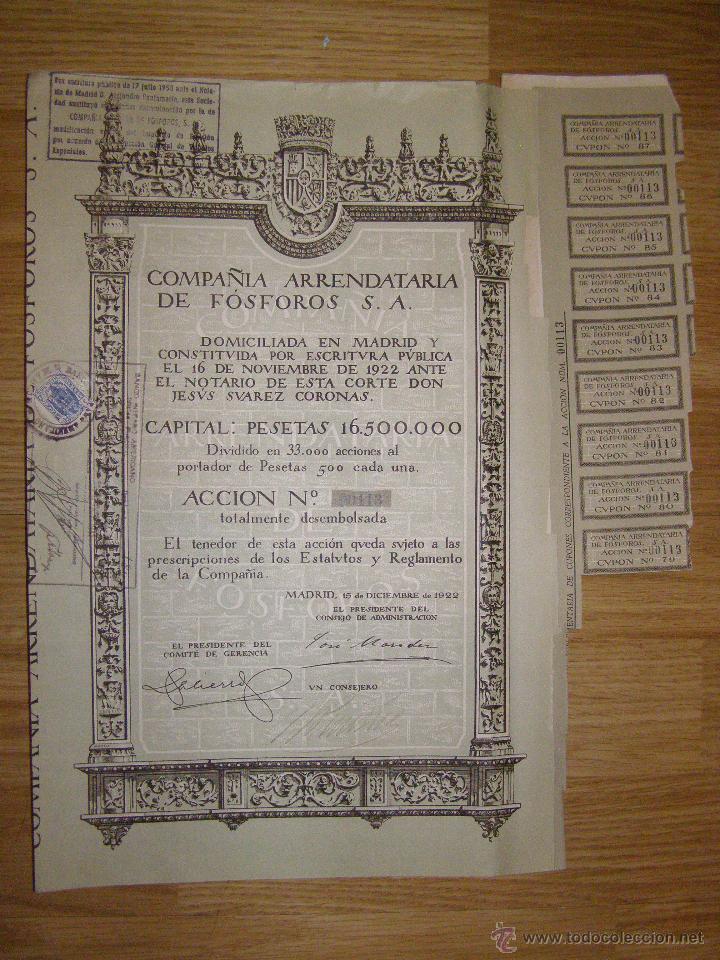 Por escritura pública de 17 julio 1950 ante el Nota-
rio de Madrid D. Alejandro Santamaría, esta Socie-
dad
COMPAÑÍA DE FÓSFOROS, S.
por acuerdo
Especiales.
COMPAÑIA ARRENDATARIA DE FOSFOROS S. A.
COMPAÑIA ARRENDATARIA
DE FÓSFOROS S. A.
DOMICILIADA EN MADRID Y
CONSTITVIDA POR ESCRITVRA PVBLICA
EL 16 DE NOVIEMBRE DE 1922 ANTE
EL NOTARIO DE ESTA CORTE DON
JESVS SVAREZ CORONAS.
CAPITAL: PESETAS 16.500.000
Dividido en 33.000 acciones al
portador de Pesetas 500 cada una.
ACCION Nº 00113
totalmente desembolsada
El tenedor de esta acción qveda svjeto a las
prescripciones de los Estatvtos y Reglamento
de la Compañia.
MADRID, 15 de DICIEMBRE de 1922
EL PRESIDENTE DEL
CONSEJO DE ADMINISTRACION
EL PRESIDENTE DEL
COMITÉ DE GERENCIA
VN CONSEJERO
COMPAÑIA ARRENDATARIA
DE FOSFOROS S.A.
ACCION Nº 00113
CVPON Nº 87
COMPAÑIA ARRENDATARIA
DE FOSFOROS S.A.
ACCION Nº 00113
CVPON Nº 86
COMPAÑIA ARRENDATARIA
DE FOSFOROS S.A.
ACCION Nº 00113
CVPON Nº 85
COMPAÑIA ARRENDATARIA
DE FOSFOROS S.A.
ACCION Nº 00113
CVPON Nº 84
COMPAÑIA ARRENDATARIA
DE FOSFOROS S.A.
ACCION Nº 00113
CVPON Nº 83
COMPAÑIA ARRENDATARIA
DE FOSFOROS S.A.
ACCION Nº 00113
CVPON Nº 82
COMPAÑIA ARRENDATARIA
DE FOSFOROS S.A.
ACCION Nº 00113
CVPON Nº 81
COMPAÑIA ARRENDATARIA
DE FOSFOROS S.A.
ACCION Nº 00113
CVPON Nº 80
COMPAÑIA ARRENDATARIA
DE FOSFOROS S.A.
ACCION Nº 00113
CVPON Nº 79
DE CUPONES CORRESPONDIENTE A LA ACCION NÚM. 00113
www.todocoleccion.net